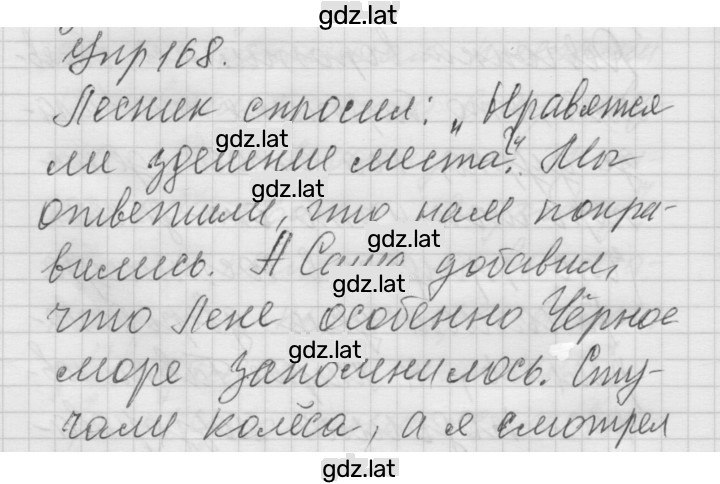 gdz.lat
Упр 168.
Лесник спросил: „Нравятся
gdz.lat
ли здешние места?“ Мы
gdz.lat
ответили, что нам понра-
gdz.lat
вились. А Саша добавил,
gdz.lat
что Лене особенно Чёрное
gdz.lat
море запомнилось. Сту-
чали колёса, а я смотрел
gdz.lat